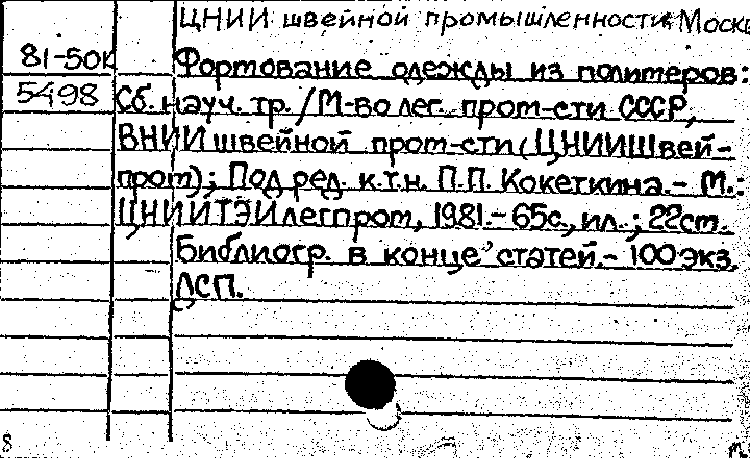 ЦНИИ швейной промышленности Москв
81-50к Формование одежды из полимеров:
5498 Сб. науч. тр. / М-во лег. пром-сти СССР,
ВНИИ швейной пром-сти (ЦНИИШвей-
пром); Под ред. к.т.н. П.П. Кокеткина. - М.:
ЦНИИТЭИлегпром, 1981. - 65с., ил.; 22см.
Библиогр. в конце статей. - 100 экз.
ДСП.
8